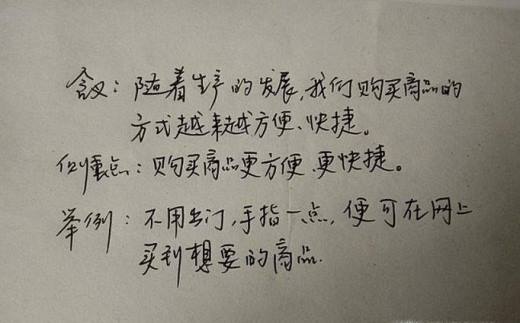 含义：随着生产的发展，我们购买商品的
方式越来越方便、快捷。
侧重点：购买商品更方便、更快捷。
举例：不用出门，手指一点，便可在网上
买到想要的商品.